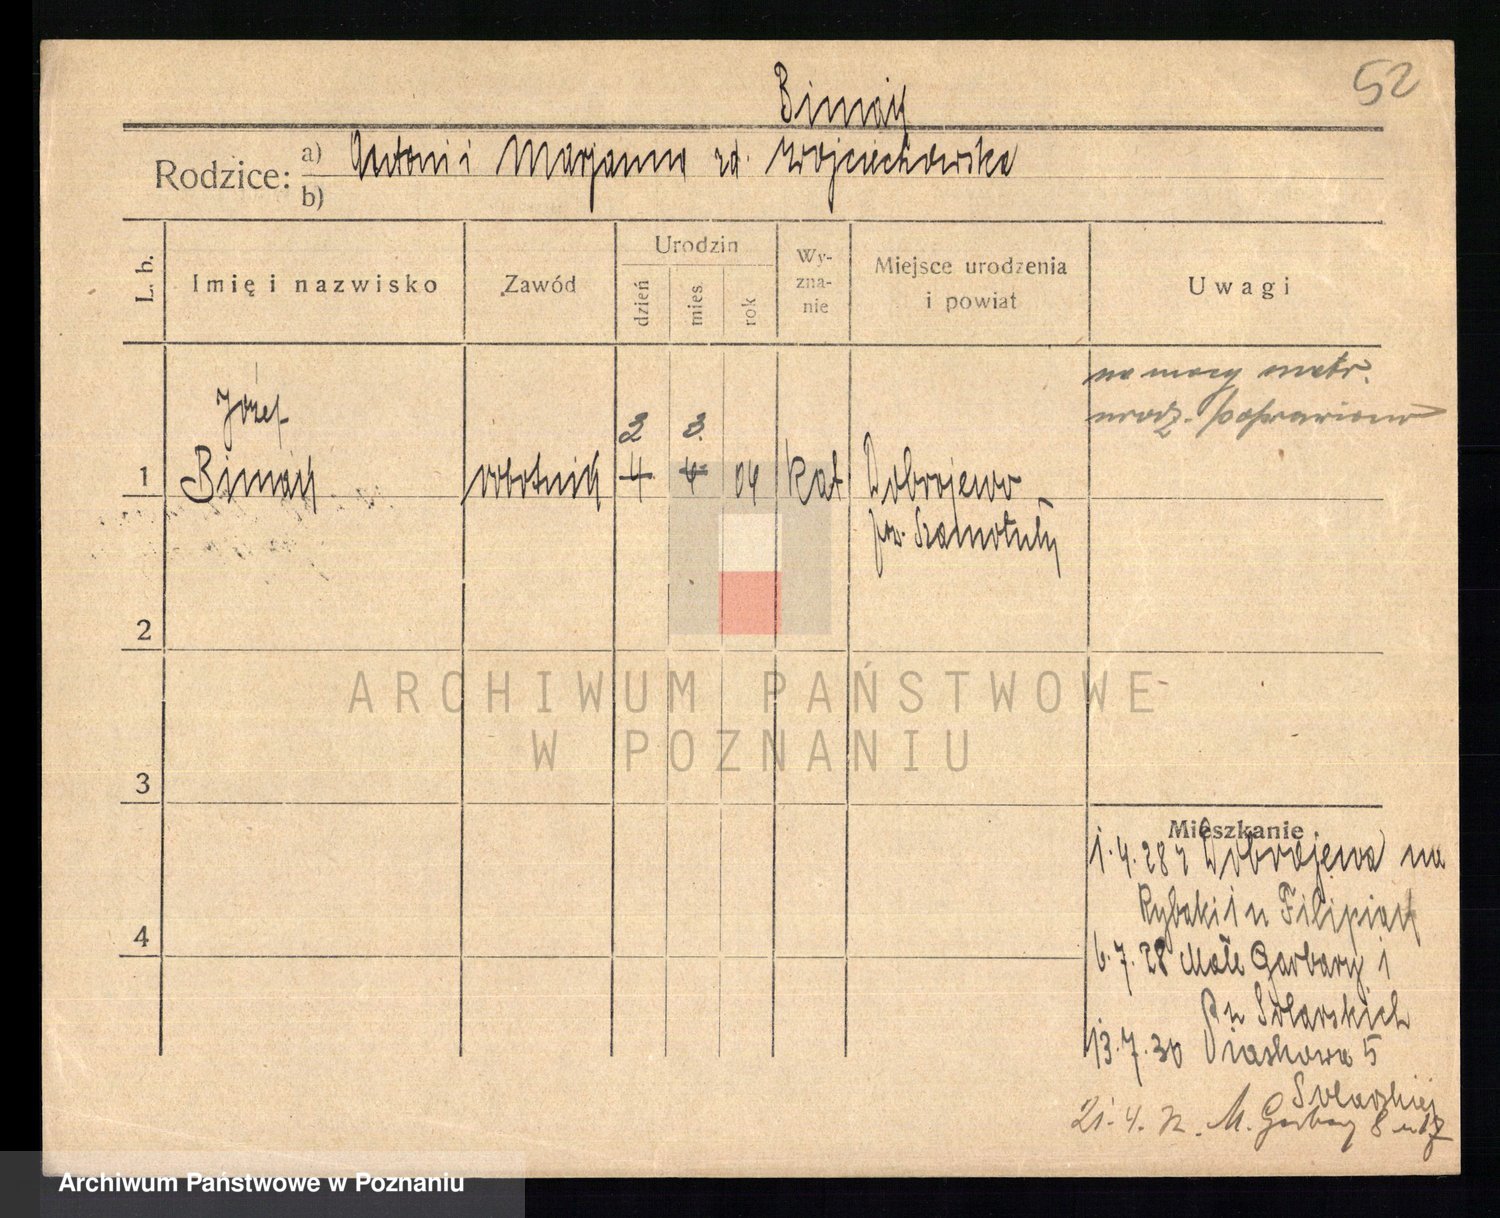 52
Bimaś
Rodzice: a) Antoni i Marjanna zd. Wojciechowska
b)
L. b.
Imię i nazwisko
Zawód
Urodzin
dzień
mies.
rok
Wy-
zna-
nie
Miejsce urodzenia
i powiat
Uwagi
na mocy metr.
urodz. poprawiono
Józef
3 3.
1 robotnik 4 4 04 kat Dobrojewo
pw. Szamotuły
2
ARCHIWUM PAŃSTWOWE
W POZNANIU
3
Mieszkanie
1.4.28 z Dobrojewa na
Rybaki 1 u Filipiak
4
6.7.28 Małe Garbary 1
u Solarskich
13.7.30 Piaskowa 5
Solarskiej
21.4. M. Garbary 8
Archiwum Państwowe w Poznaniu